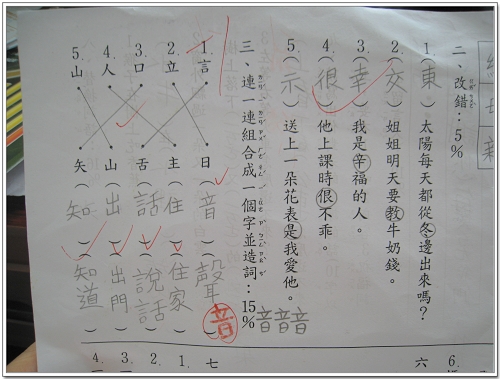 二、改錯：5%
1.（東）太陽每天都從冬邊出來嗎？
2.（交）姐姐明天要教牛奶錢。
3.（幸）我是辛福的人。
4.（很）他上課時很不乖。
5.（示）送上一朵花表是我愛他。
三、連一連組合成一個字並造詞：15%
1.言 日（音）（聲音）
音音音
2.立 主（住）（住家）
3.口 舌（話）（說話）
4.人 山（出）（出門）
5.山 矢（知）（知道）
六
6.
七
1.
2.
3.
4.